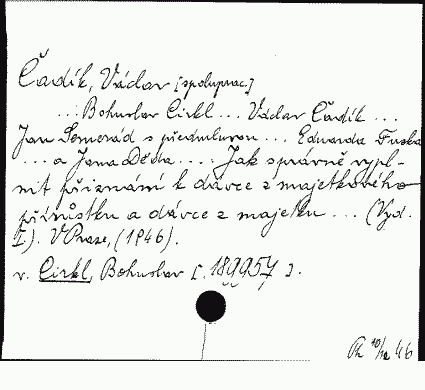 Čadík, Václav [spoluprac.]
... Bohuslav Cirkl ... Václav Čadík ...
Jan Semerád s předmluvou ... Eduarda Fuska
... a Jana Děda ... : Jak správně vypl-
nit přiznání k dávce z majetkového
přírůstku a dávce z majetku ... (Vyd.
I). V Praze, (1946).
v. Cirkl, Bohuslav [. 189957 ].
10/12 46